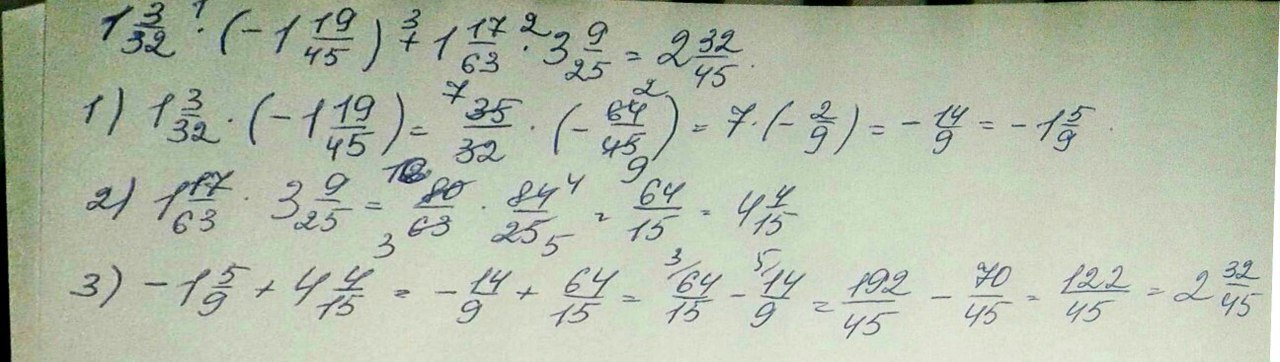 1 3/32 · (-1 19/45) + 1 17/63 · 3 9/25 = 2 32/45.
1) 1 3/32 · (-1 19/45) = 35/32 · (- 64/45) = 7 · (- 2/9) = - 14/9 = - 1 5/9.
2) 1 17/63 · 3 9/25 = 80/63 · 84/25 = 64/15 = 4 4/15
3) - 1 5/9 + 4 4/15 = - 14/9 + 64/15 = 64/15 - 14/9 = 192/45 - 70/45 = 122/45 = 2 32/45